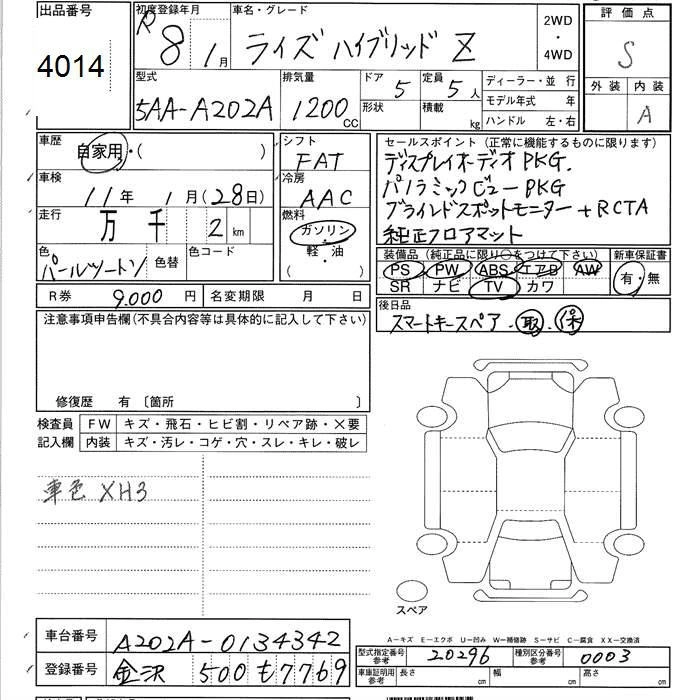 出品番号
4014
初度登録年月
R 8 1月
車名・グレード
ライズ ハイブリッド Z
2WD
・
4WD
評価点
S
外装 内装
A
型式
5AA-A202A
排気量
1200 CC
ドア 5
形状
定員 5人
積載 kg
ディーラー・並 行
モデル年式 年
ハンドル 左・右
車歴
自家用・( )
車検
11年 1月(28日)
走行
万 千 2 km
色
パールツートン
色替
色コード
シフト
FAT
冷房
AAC
燃料
ガソリン
・
軽・油
( )
セールスポイント (正常に機能するものに限ります)
ディスプレイオーディオPKG.
パノラミックビューPKG
ブラインドスポットモニター+RCTA
純正フロアマット
装備品 (純正品に限り○をつけて下さい)
PS PW ABS エアB AW
SR ナビ TV カワ
新車保証書
有・無
R券 9.000 円
名変期限 月 日
後日品
スマートキースペア・取・保
注意事項申告欄(不具合内容等は具体的に記入して下さい)
修復歴 有 〔箇所 〕
検査員
記入欄
FW キズ・飛石・ヒビ割・リペア跡・×要
内装 キズ・汚レ・コゲ・穴・スレ・キレ・破レ
車色 XH3
スペア
車台番号 A202A-0134342
登録番号 金沢 500 も7769
A-キズ E-エクボ U-凹み W-補修跡 S-サビ C-腐食 XX-交換済
型式指定番号
参考
20296
種別区分番号
参考
0003
車庫証明用
参考
長さ cm
幅 cm
高さ cm